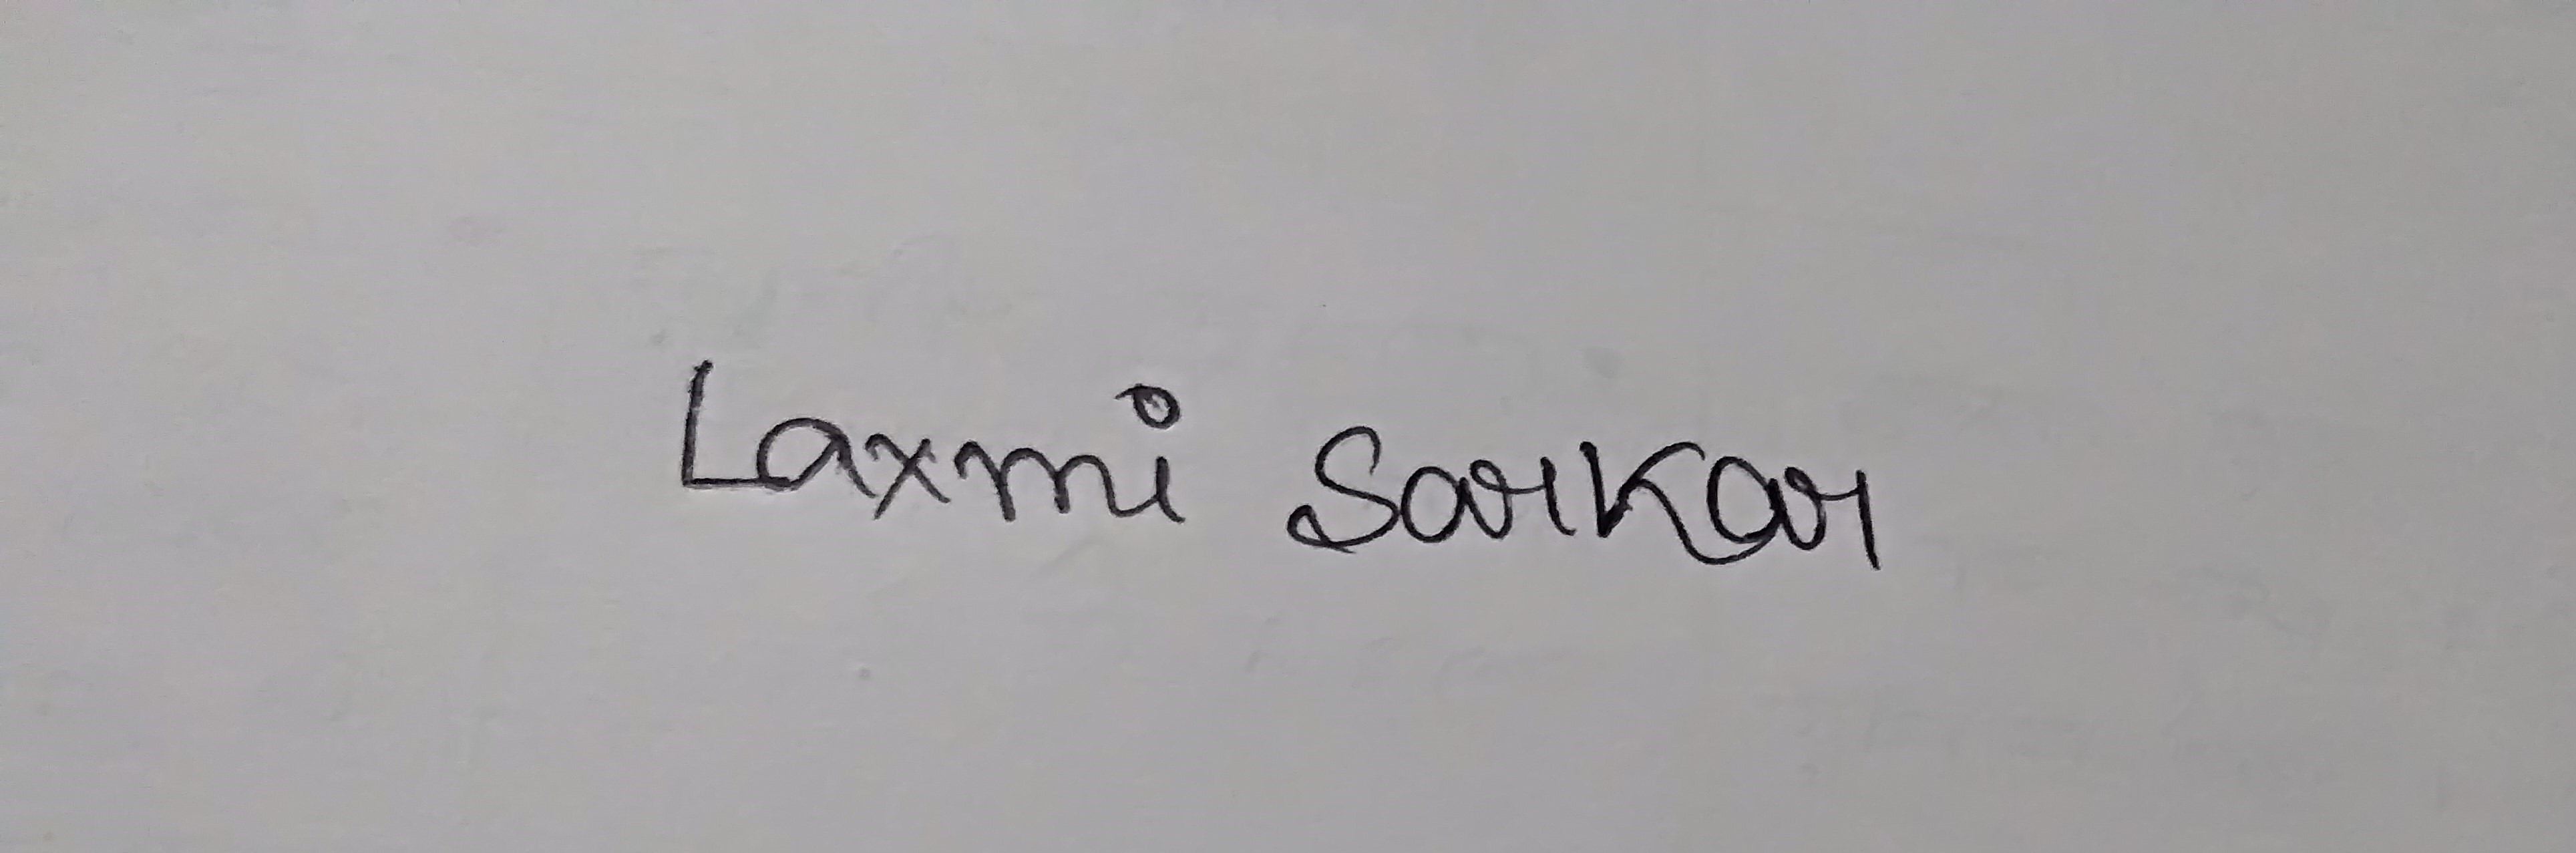 Laxmi Sarkar